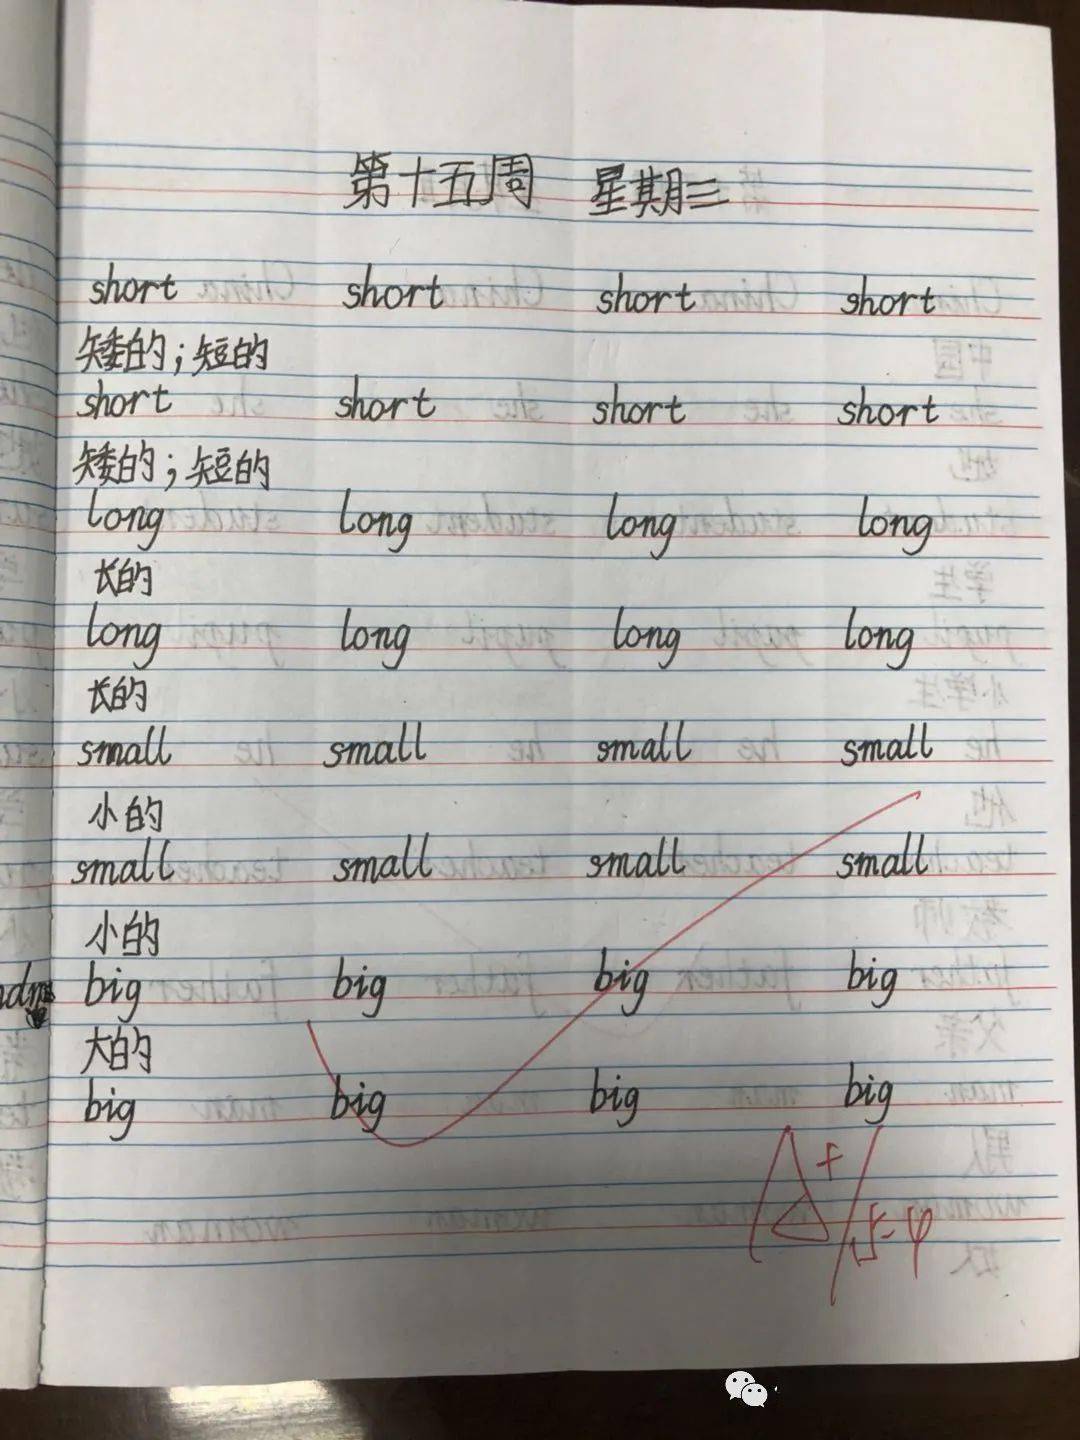 第十五周 星期三
short short short short
矮的；短的
short short short short
矮的；短的
long long long long
长的
long long long long
长的
small small small small
小的
small small small small
小的
big big big big
大的
big big big big